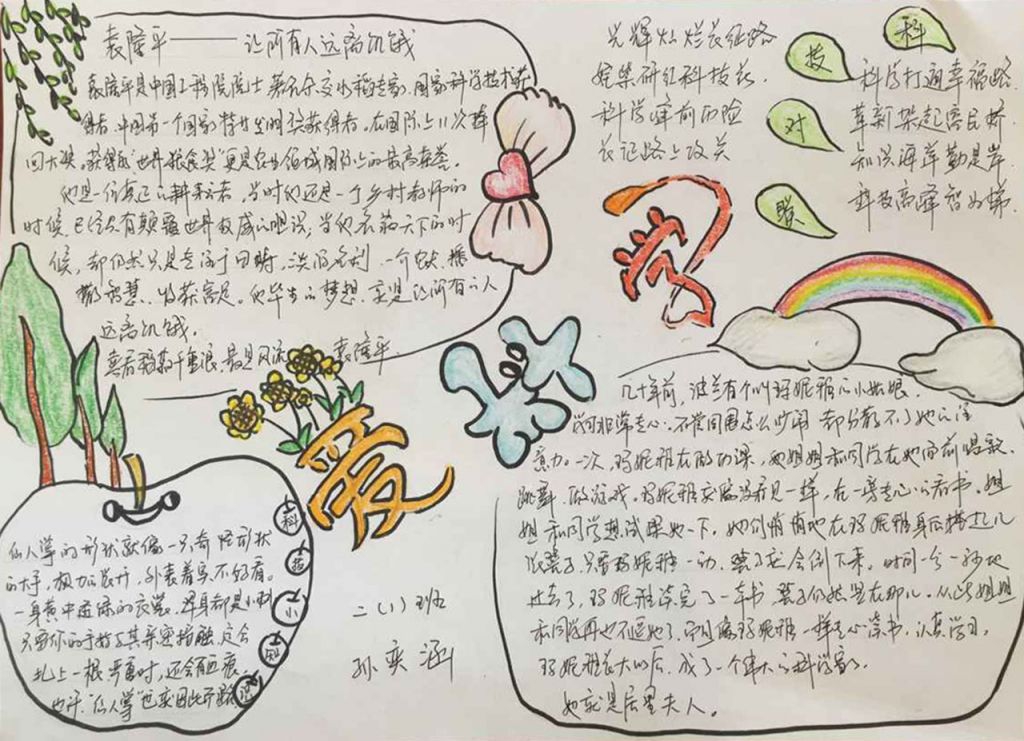 袁隆平——让所有人远离饥饿
袁隆平是中国工程院院士 著名杂交水稻专家,国家科学技术获
得者,中国第一个国家特廿发明奖获得者。在国际上11次捧
回大奖。获得的"世界粮食奖"更是农业领域国际上的最高荣誉。
他是一位真正的耕耘者,当时他还是一个乡村教师的
时候,已经具有颠覆世界权威的胆识;当他名莉天下的时
候,却仍然只是专注于田畴,淡泊名利,一介农夫,播
撒智慧,收获富足。他毕生的梦想,就是让所有的人
远离饥饿。
喜看稻菽千重浪,最是风流袁隆平.
光辉灿烂长征路
科学峰前历险
长记路上攻关
科技对联
科学打通幸福路.
革新架起富民桥
知识海洋勤是岸
科技高峰智为梯.
爱科学
几十年前,波兰有个叫玛妮雅的小姑娘.
学习非常专心.不管周围怎么吵闹 都分散不了她的注
意力。一次,玛妮雅在做功课,她姐姐和同学在她面前唱歌.
跳舞、做游戏。玛妮雅就像没看见一样,在一旁专心的看书。姐
姐和同学想试探她一下。她们悄悄地在玛妮雅身后搭起几
张凳子,只要玛妮雅一动,凳子就会倒下来。时间一分一秒地
过去了,玛妮雅读完了一本书 凳子仍然竖在那儿。从此姐姐
和同学再也不逗她了,而且像玛妮雅一样专心读书,认真学习,
玛妮雅长大以后,成了一个伟大的科学家.
她就是居里夫人。
科技小知识
仙人掌的形状就像一只奇怪形状
的大手,极力张开,外表看着不好看。
一身黄中透绿的衣裳。浑身都是小刺
只要你的手指与其亲密接触,定会
扎上一根,严重时,还会留血痕
也许"仙人掌"也就因此而
二(1)班
孙奕涵